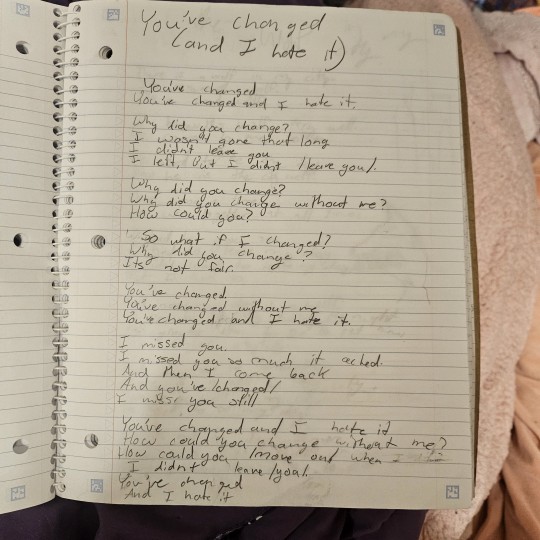 You've changed
(and I hate it)
You've changed
You've changed and I hate it.
Why did you change?
I wasn't gone that long
I didn't leave you
I left, but I didn't /leave you/.
Why did you change?
Why did you change without me?
How could you?
So what if I changed?
Why did you change?
Its not fair.
You've changed
You've changed without me
You've changed and I hate it.
I missed you
I missed you so much it ached.
And then I come back
And you've /changed/
I miss you still
You've changed and I hate it
How could you change without me?
How could you /move on/ when I
I didn't leave /you/.
You've changed
And I hate it